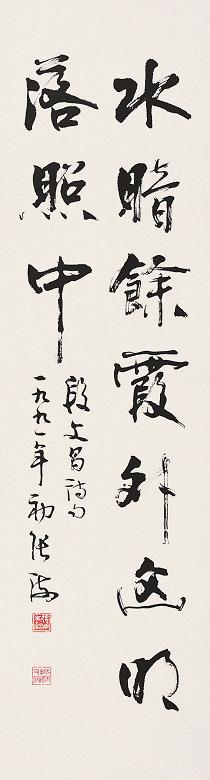 水暗餘霞外山明
落照中
段文昌詩句
一九九一年初張海